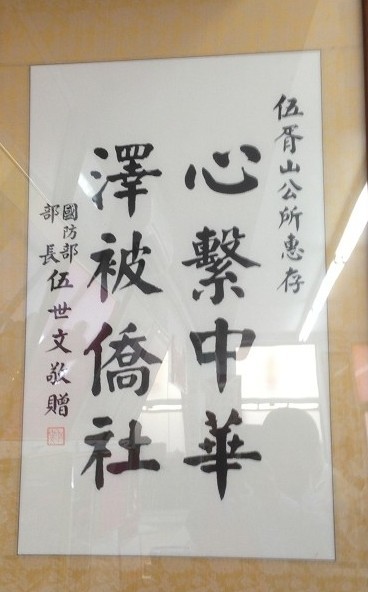 伍胥山公所惠存
心繫中華
澤被僑社
國防部
部長伍世文敬贈